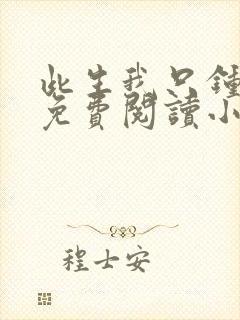 此生我只鍾
免費閱讀小
程士安